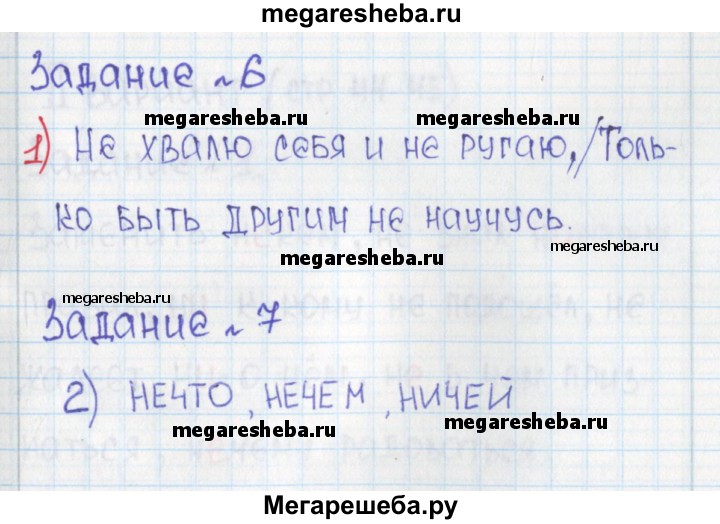 megaresheba.ru
Задание №6
megaresheba.ru megaresheba.ru
1) Не хвалю себя и не ругаю,/Толь-
ко быть другим не научусь.
megaresheba.ru
megaresheba.ru
megaresheba.ru
Задание №7
2) НЕЧТО, НЕЧЕМ, НИЧЕЙ
megaresheba.ru megaresheba.ru
Мегарешеба.ру